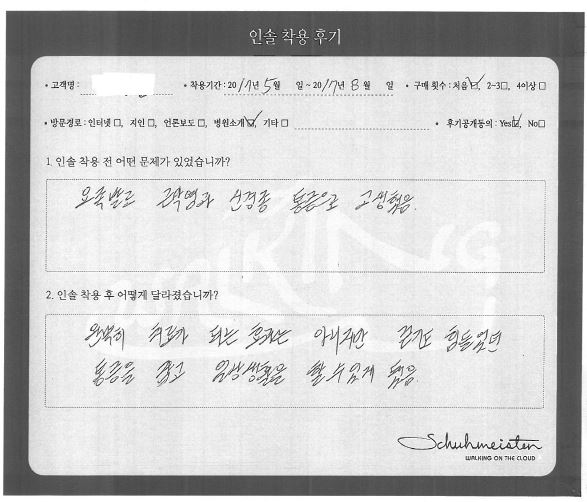 인솔 착용 후기
• 고객명 : • 착용기간 : 2017년 5월 일 ~ 2017년 8월 일 • 구매 횟수 : 처음☑, 2~3□, 4이상□
• 방문경로 : 인터넷□, 지인□, 언론보도□, 병원소개☑, 기타□ • 후기공개동의 : Yes☑, No□
1. 인솔 착용 전 어떤 문제가 있었습니까?
요족발로 근막염과 신경종 통증으로 고생했음.
WALKING
2. 인솔 착용 후 어떻게 달라졌습니까?
완벽히 치료가 되는 효과는 아니지만 걷기도 힘들었던
통증을 잡고 일상생활을 할 수 있게 됐음.
Schuhmeister
WALKING ON THE CLOUD